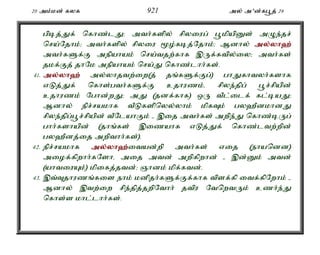 20 அம்மன் கலக 921 அல் அன்கபூத் 29
பிடித்துக் கொண்டது; அவர்களில் சிலரைப் பூமியினுள் அழுந்தச்
செய்தோம்; அவர்களில் சிலரை மூழ்கடித்தோம்; ஆனால் அல்லாஹ்
அவர்களுக்கு அநியாயம் செய்வதற்காக இருக்கவில்லை; அவர்கள்
தமக்குத் தாமே அநியாயம் செய்து கொண்டார்கள்.
41. அல்லாஹ் அல்லாதவற்றை(த் தங்களுக்குப்) பாதுகாவலர்களாக
எடுத்துக் கொள்பவர்களுக்கு உதாரணம், சிலந்திப் பூச்சியின்
உதாரணம் போன்றது; அது (தனக்காக) ஒரு வீட்டைக் கட்டியது;
ஆனால் நிச்சயமாக வீடுகளிலெல்லாம் மிகவும் பலஹீனமானது
சிலந்திப்பூச்சியின் வீடேயாகும் - இதை அவர்கள் அறிந்து கொண்டிருப்
பார்களாயின் (தாங்கள் இணையாக எடுத்துக் கொண்டவற்றின்
பலஹீனத்தை அறிவார்கள்).
42. நிச்சயமாக அல்லாஹ்வையன்றி அவர்கள் எதை (நாயனென)
அழைக்கிறார்களோ, அதை அவன் அறிகிறான் - இன்னும் அவன்
(யாவரையும்) மிகைத்தவன்; ஞானம் மிக்கவன்.
43. இவ்வுதாரணங்களை நாம் மனிதர்களுக்குக்காக விளக்கி வைக்கிறோம் -
ஆனால் இவற்றை சிந்தித்தறிவோர் தவிர வேறெவரும் உணர்ந்து
கொள்ள மாட்டார்கள்.